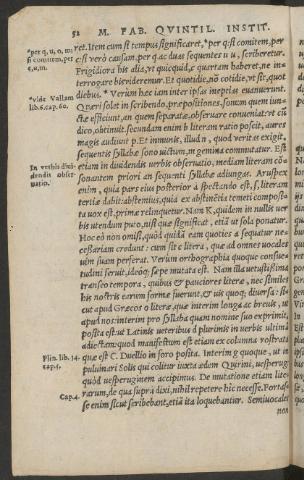 52 M. FAB. QVINTIL. INSTIT.
ret. Item cum si tempus significaret, * per q. si comitem, per
c. si verò causam. per q. ac duas sequentes u u, scriberetur.
Frigidiora his alia, vt quicquid, c quartam haberet, ne in-
terrogare bis videremur. Et quotidie, nō cotidie, vt sit, quot
diebus. * Verùm hæc iam inter ipsas ineptias euanuerunt.
Quæri solet in scribendo, præpositiones, sonum quem iun-
ctæ efficiunt, an quem separatæ, obseruare conueniat: vt cū
dico, obtinuit, secundam enim b literam ratio poscit, aures
magis audiunt p. Et immunis, illud n, quod verit as exigit,
sequentis syllabæ sono victum, m gemina commutatur. Est
etiam in diuidendis verbis obseruatio, mediam literam cō-
sonantem priori an sequenti syllabæ adiungas. Aruspex
enim, quia pars eius posterior à spectando est, s, literam
tertiæ dabit: abstemius, quia ex abstinētia temeti composi-
ta vox est, primæ relinquetur. Nam K, quidem in nullis ver
bis vtendum puto, nisi quæ significat, etiā vt sola ponatur.
Hoc eò non omisi, quòd quidā eam quoties a sequatur ne-
cessariam credunt: cum sit c litera, quæ ad omnes vocales
vim suam perferat. Verùm orthographia quoque consue-
tudini seruit, ideóq; sæpe mutata est. Nam illa vetustissima
transeo tempora, quibus & pauciores literæ, nec similes
his nostris earum formæ fuerunt, & vis quoq; diuersa: si-
cut apud Græcos o literæ, quæ interim longa ac breuis, vt
apud nos: interim pro syllaba quam nomine suo exprimit,
posita est: ut Latinis ueteribus d plurimis in uerbis ultimā
adiectam: quod manifestum est etiam ex columna rostrata
quæ est C. Duellio in foro posita. Interim g quoque, ut in
puluinari Solis qui colitur iuxta ædem Quirini, uesperug:
quòd uesperuginem accipimus. De mutatione etiam lite-
rarum, de qua suprà dixi, nihil repetere hic necesse. Fortas-
se enim sicut scribebant, etiā ita loquebantur. Semiuocales
non
* per q, u, o, m
si comitem, per
c, u, m.
* vide Vallam
lib. 6. cap. 60.
In verbis diui-
dendis obser-
uatio.
Plin. lib. 34.
cap. 5.
Cap. 4.